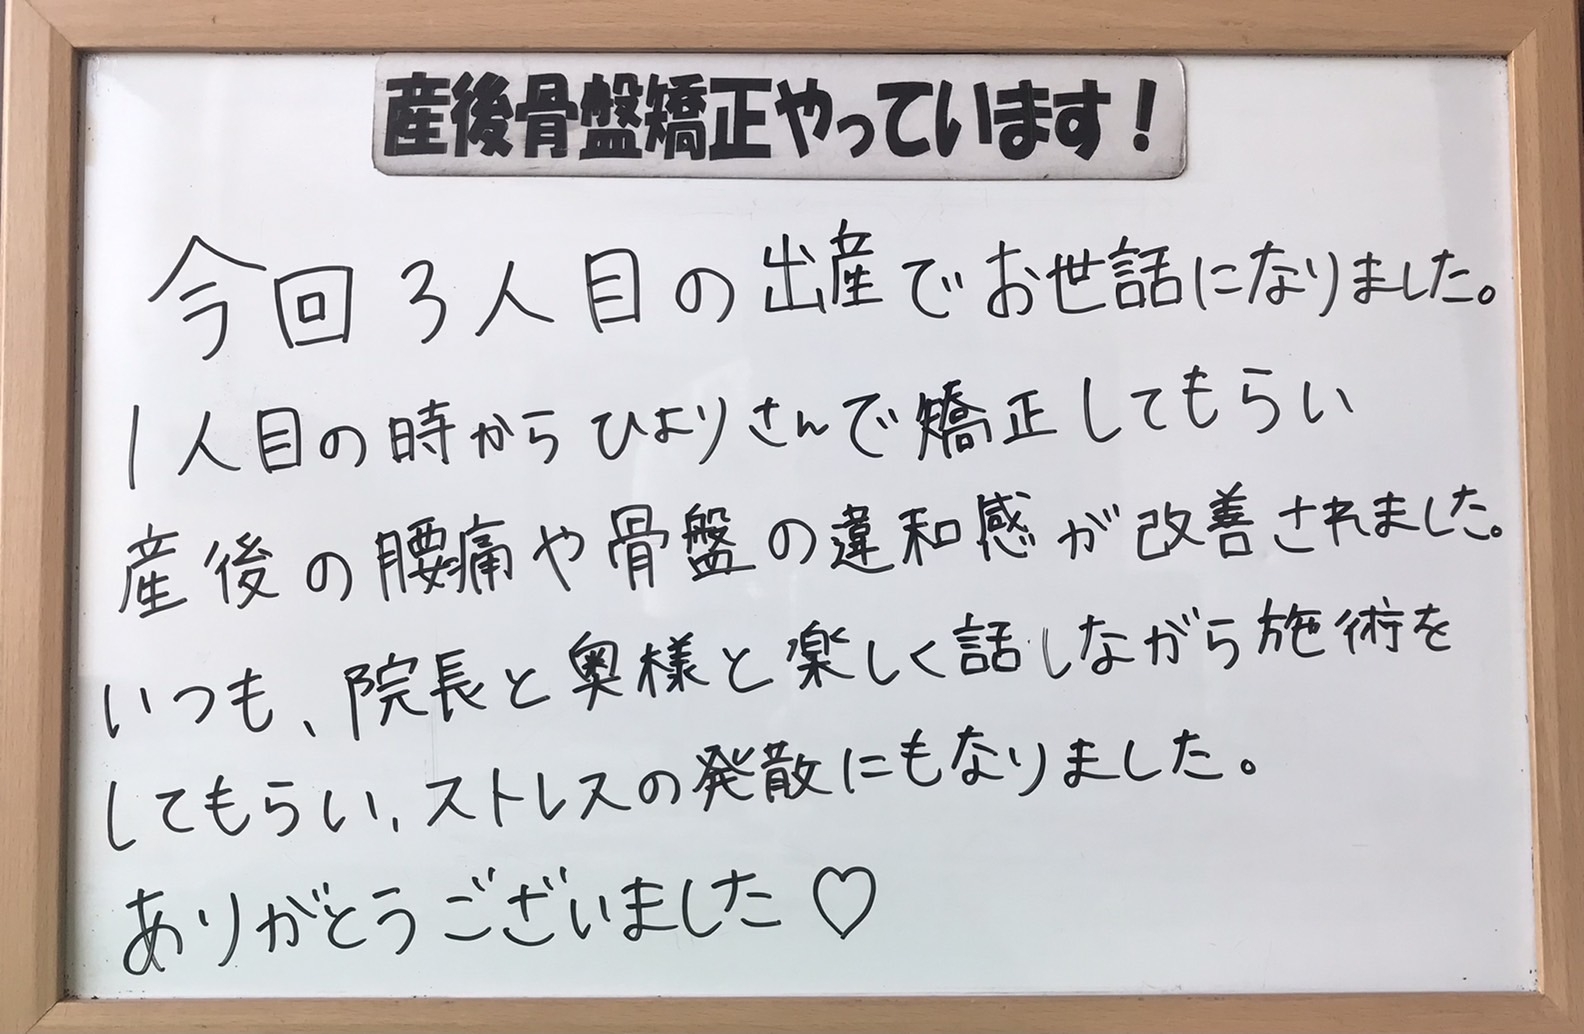 産後骨盤矯正やっています！
今回3人目の出産でお世話になりました。
1人目の時からひよりさんで矯正してもらい
産後の腰痛や骨盤の違和感が改善されました。
いつも、院長と奥様と楽しく話しながら施術を
してもらい、ストレスの発散にもなりました。
ありがとうございました♡